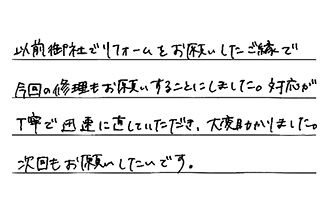 以前御社でリフォームをお願いしたご縁で
今回の修理もお願いすることにしました。対応が
丁寧で迅速に直していただき、大変助かりました。
次回もお願いしたいです。